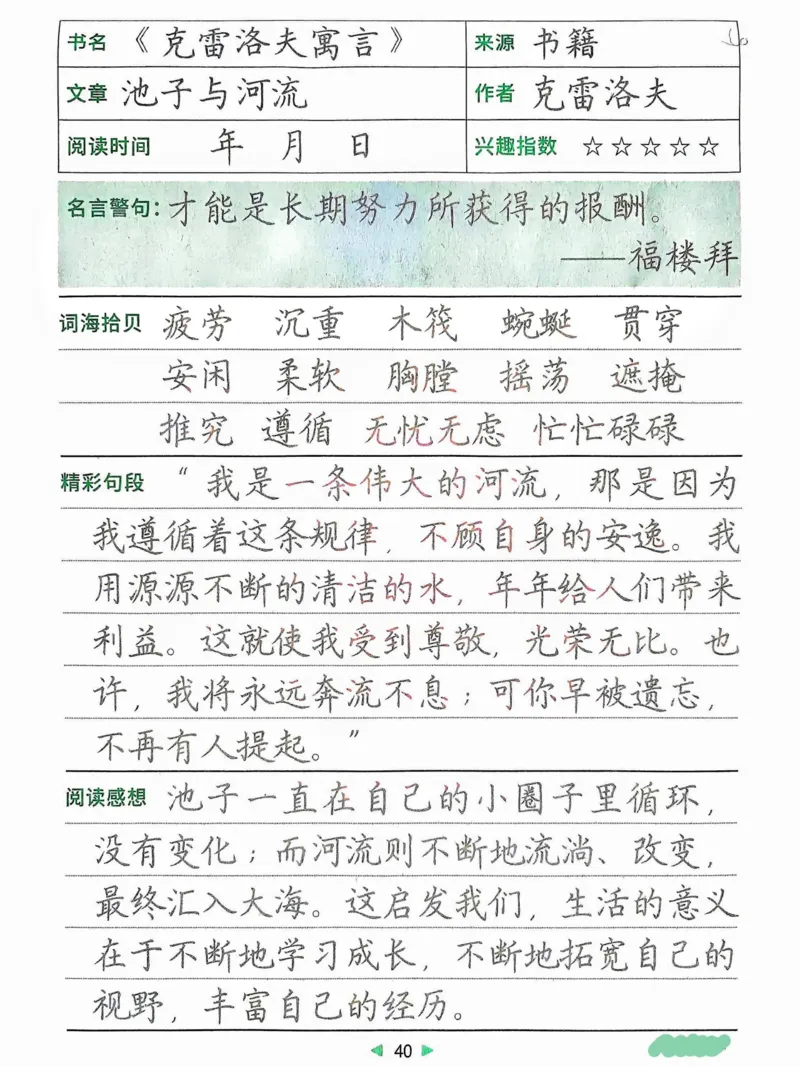 书名 《克雷洛夫寓言》 来源 书籍
文章 池子与河流 作者 克雷洛夫
阅读时间 年 月 日 兴趣指数 ☆☆☆☆☆
名言警句：才能是长期努力所获得的报酬。
——福楼拜
词海拾贝 疲劳 沉重 木筏 蜿蜒 贯穿
安闲 柔软 胸膛 摇荡 遮掩
推究 遵循 无忧无虑 忙忙碌碌
精彩句段 “我是一条伟大的河流，那是因为
我遵循着这条规律，不顾自身的安逸。我
用源源不断的清洁的水，年年给人们带来
利益。这就使我受到尊敬，光荣无比。也
许，我将永远奔流不息；可你早被遗忘，
不再有人提起。”
阅读感想 池子一直在自己的小圈子里循环，
没有变化；而河流则不断地流淌、改变，
最终汇入大海。这启发我们，生活的意义
在于不断地学习成长，不断地拓宽自己的
视野，丰富自己的经历。
40